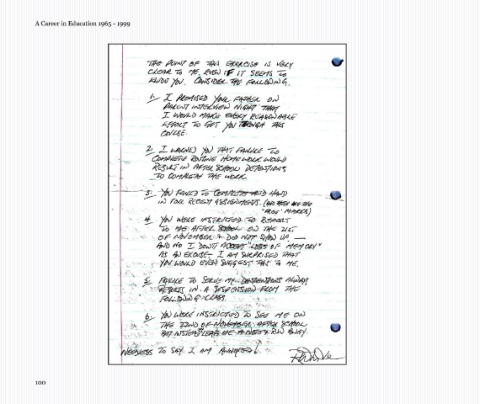 A Career in Education 1965 - 1999
THE POINT OF THIS EXERCISE IS VERY
CLEAR TO ME, EVEN IF IT SEEMS TO
YOU. CONSIDER THE FOLLOWING.
1. I PROMISED YOUR FATHER ON
PARENT INTERVIEW NIGHT THAT
I WOULD MAKE EVERY REASONABLE
EFFORT TO GET YOU THROUGH THIS
COURSE.
2. I WARNED YOU THAT FAILURE TO
COMPLETE ROUTINE HOMEWORK WOULD
RESULT IN AFTER SCHOOL DETENTIONS
TO COMPLETE THE WORK.
3. YOU FAILED TO COMPLETE AND HAND
IN FOUR RECENT ASSIGNMENTS.
MARKS)
4. YOU WERE INSTRUCTED TO REPORT
TO ME AFTER SCHOOL ON THE 21ST
OF NOVEMBER & DID NOT SHOW UP. —
AND NO I DON'T ACCEPT "LOSS OF MEMORY"
AS AN EXCUSE - I AM SURPRISED THAT
YOU WOULD EVEN SUGGEST THIS TO ME.
5. FAILURE TO SERVE MY DETENTIONS ALWAYS
RESULTS IN A SUSPENSION FROM THE
FOLLOWING CLASS.
6. YOU WERE INSTRUCTED TO SEE ME ON
THE 22ND OF NOVEMBER AFTER SCHOOL
BUT INSTEAD A NOTE & RUN AWAY
NEEDLESS TO SAY I AM ANNOYED!
100